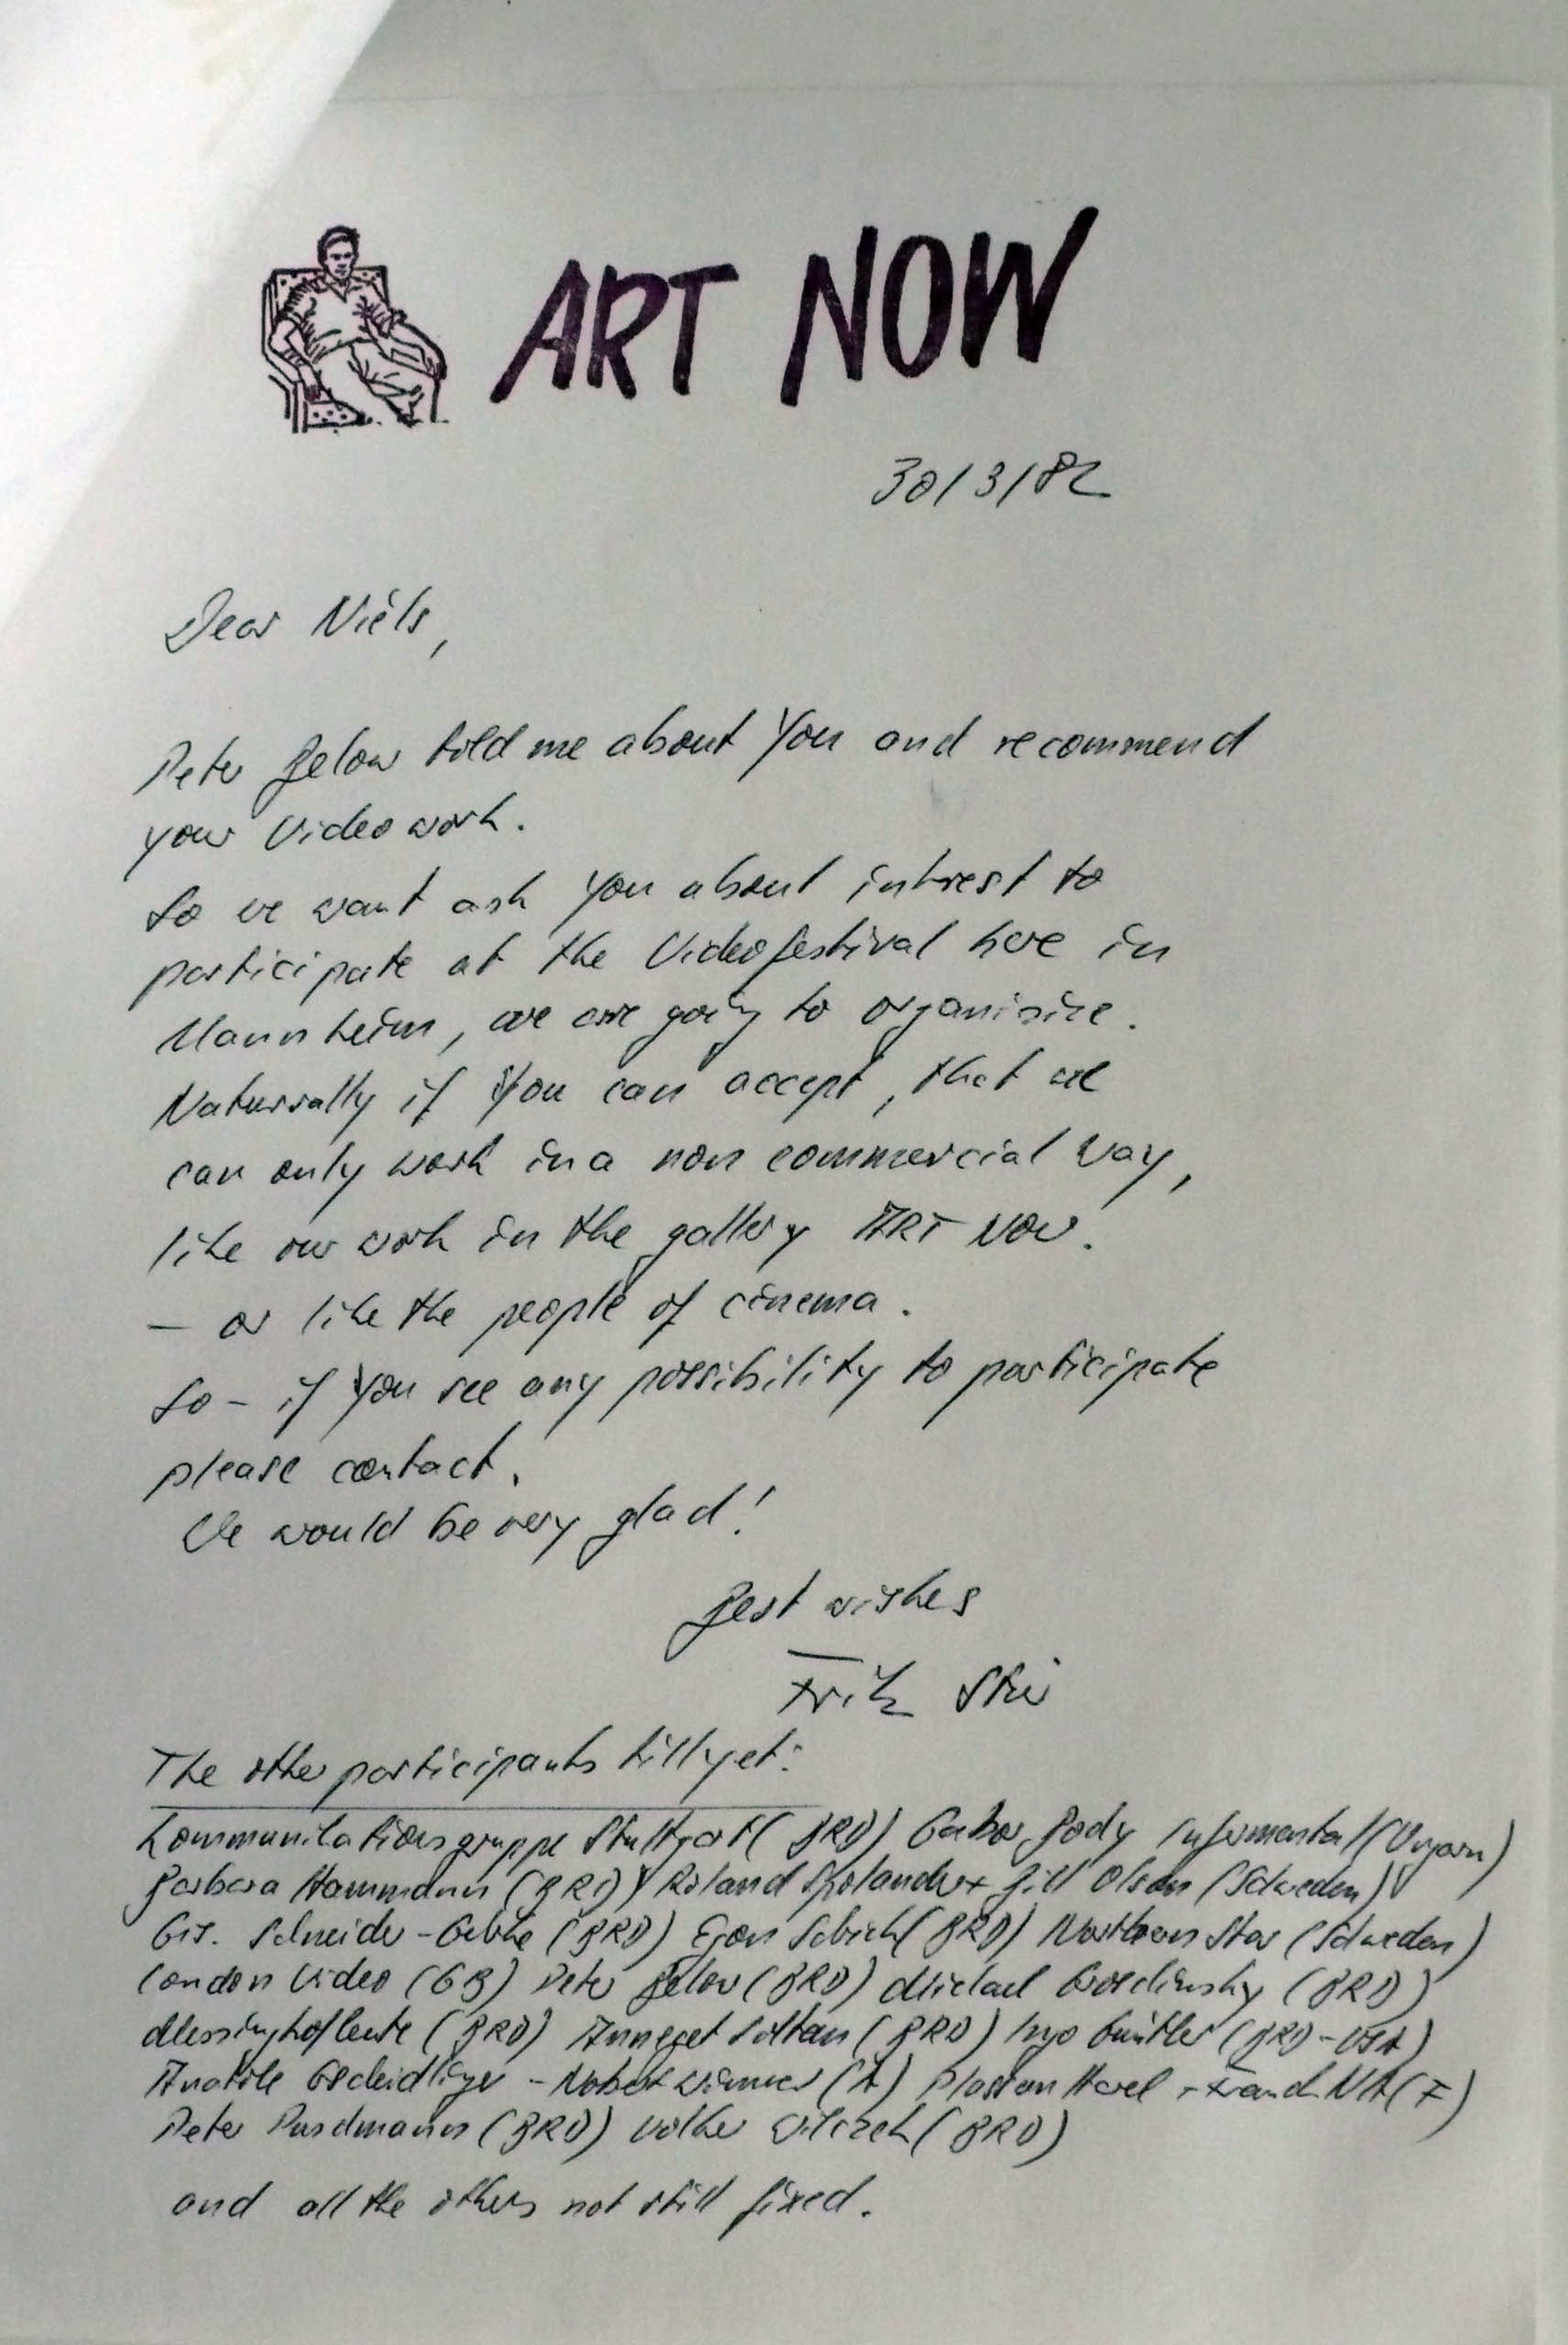 ART NOW
30/3/82
Dear Niels,
Peter Below told me about You and recommend
your Videowork.
So we want ask You about intrest to
participate at the Videofestival here in
Mannheim, we are going to organisize.
Naturrally if You can accept, that we
can only work in a non commercial way,
like our work in the gallery ART NOW.
– or like the people of cinema.
So – if You see any possibility to participate
please contact.
We would be very glad!
Best wishes
Fritz
The other participants till yet:
Kommunikationsgruppe Stuttgart (BRD) Gabor Body Infermental (Ungarn)
Barbara Hammann (BRD) Roland Olson (Schweden)
Schneider - (BRD) Egon (BRD) Northern Star (Schweden)
London Video (GB) Peter Below (BRD) Michael (BRD)
(BRD) Annegret Soltau (BRD) Ingo Günther (BRD-USA)
- (A) (F)
Peter (BRD) Volker (BRD)
and all the others not still fixed.